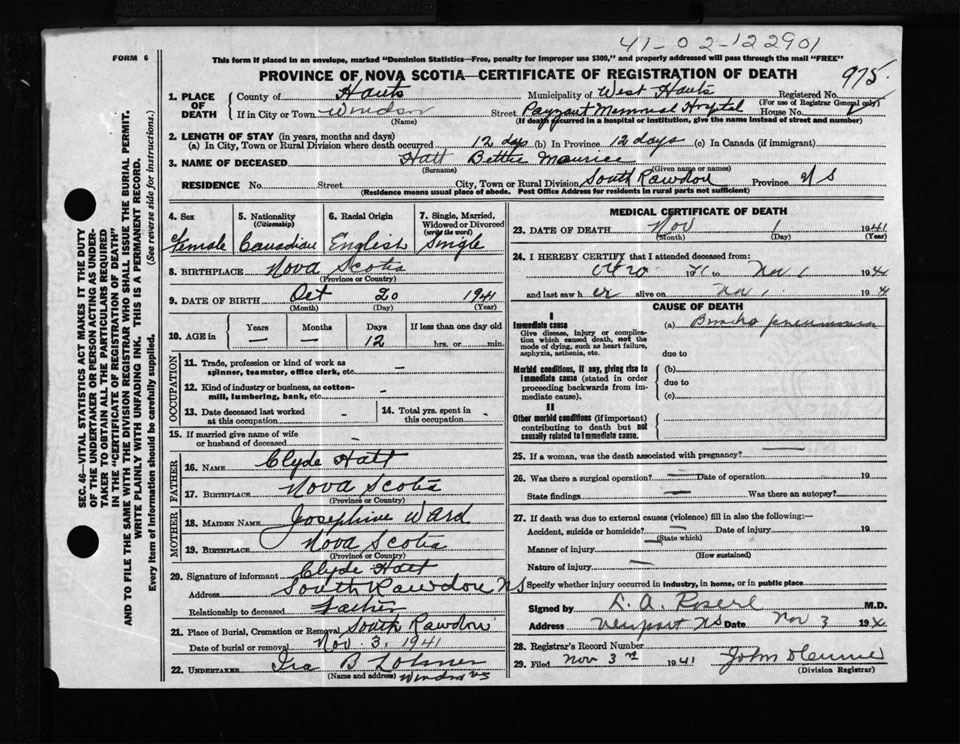 41-02-122901
FORM 6
This form if placed in an envelope, marked "Dominion Statistics—Free, penalty for improper use $300," and properly addressed will pass through the mail "FREE"
PROVINCE OF NOVA SCOTIA—CERTIFICATE OF REGISTRATION OF DEATH
975
SEC. 46—VITAL STATISTICS ACT MAKES IT THE DUTY
OF THE UNDERTAKER OR PERSON ACTING AS UNDER-
TAKER TO OBTAIN ALL THE PARTICULARS REQUIRED
IN THE "CERTIFICATE OF REGISTRATION OF DEATH"
AND TO FILE THE SAME WITH THE DIVISION REGISTRAR WHO SHALL ISSUE THE BURIAL PERMIT.
WRITE PLAINLY WITH UNFADING INK. THIS IS A PERMANENT RECORD.
Every item of information should be carefully supplied. (See reverse side for instructions.)
1. PLACE OF DEATH
County of Hants Municipality of West Hants Registered No.
(For use of Registrar General only)
If in City or Town Windsor Street Payzant Memorial Hospital House No.
(Name) (If death occurred in a hospital or institution, give the name instead of street and number)
2. LENGTH OF STAY (in years, months and days)
(a) In City, Town or Rural Division where death occurred 12 days (b) In Province 12 days (c) In Canada (if immigrant)
3. NAME OF DECEASED Hatt Bettie Maurice
(Surname) (Given name or names)
RESIDENCE No. Street City, Town or Rural Division South Rawdon Province N S
(Residence means usual place of abode. Post Office Address for residents in rural parts not sufficient)
4. Sex 5. Nationality (Citizenship) 6. Racial Origin 7. Single, Married, Widowed or Divorced (write the word)
Female Canadian English Single
8. BIRTHPLACE Nova Scotia
(Province or Country)
9. DATE OF BIRTH Oct 20 1941
(Month) (Day) (Year)
10. AGE in Years Months Days If less than one day old
— — 12 hrs. or min.
OCCUPATION
11. Trade, profession or kind of work as
spinner, teamster, office clerk, etc. —
12. Kind of industry or business, as cotton-
mill, lumbering, bank, etc. -
13. Date deceased last worked
at this occupation -
14. Total yrs. spent in
this occupation -
15. If married give name of wife
or husband of deceased -
FATHER
16. NAME Clyde Hatt
17. BIRTHPLACE Nova Scotia
(Province or Country)
MOTHER
18. MAIDEN NAME Josephine Ward
19. BIRTHPLACE Nova Scotia
(Province or Country)
20. Signature of informant Clyde Hatt
Address South Rawdon NS
Relationship to deceased Father
21. Place of Burial, Cremation or Removal South Rawdon
Date of burial or removal Nov. 3, 1941
22. UNDERTAKER Ira B
(Name and address) Windsor NS
MEDICAL CERTIFICATE OF DEATH
23. DATE OF DEATH Nov 1 1941
(Month) (Day) (Year)
24. I HEREBY CERTIFY that I attended deceased from:
Oct 20 to Nov 1
and last saw her alive on Nov 1
CAUSE OF DEATH
I
Immediate cause (a) Broncho pneumonia
Give disease, injury or complica-
tion which caused death, not the
mode of dying, such as heart failure,
asphyxia, asthenia, etc.
due to
Morbid conditions, if any, giving rise to
immediate cause (stated in order
proceeding backwards from im-
mediate cause).
(b)
due to
(c)
II
Other morbid conditions (if important)
contributing to death but not
causally related to immediate cause.
25. If a woman, was the death associated with pregnancy? —
26. Was there a surgical operation? — Date of operation 19
State findings — Was there an autopsy?
27. If death was due to external causes (violence) fill in also the following:—
Accident, suicide or homicide? — Date of injury 19
(State which)
Manner of injury
(How sustained)
Nature of injury —
Specify whether injury occurred in industry, in home, or in public place
Signed by L. A. M.D.
Address Newport NS Date Nov 3
28. Registrar's Record Number
29. Filed Nov 3 1941 John
(Division Registrar)